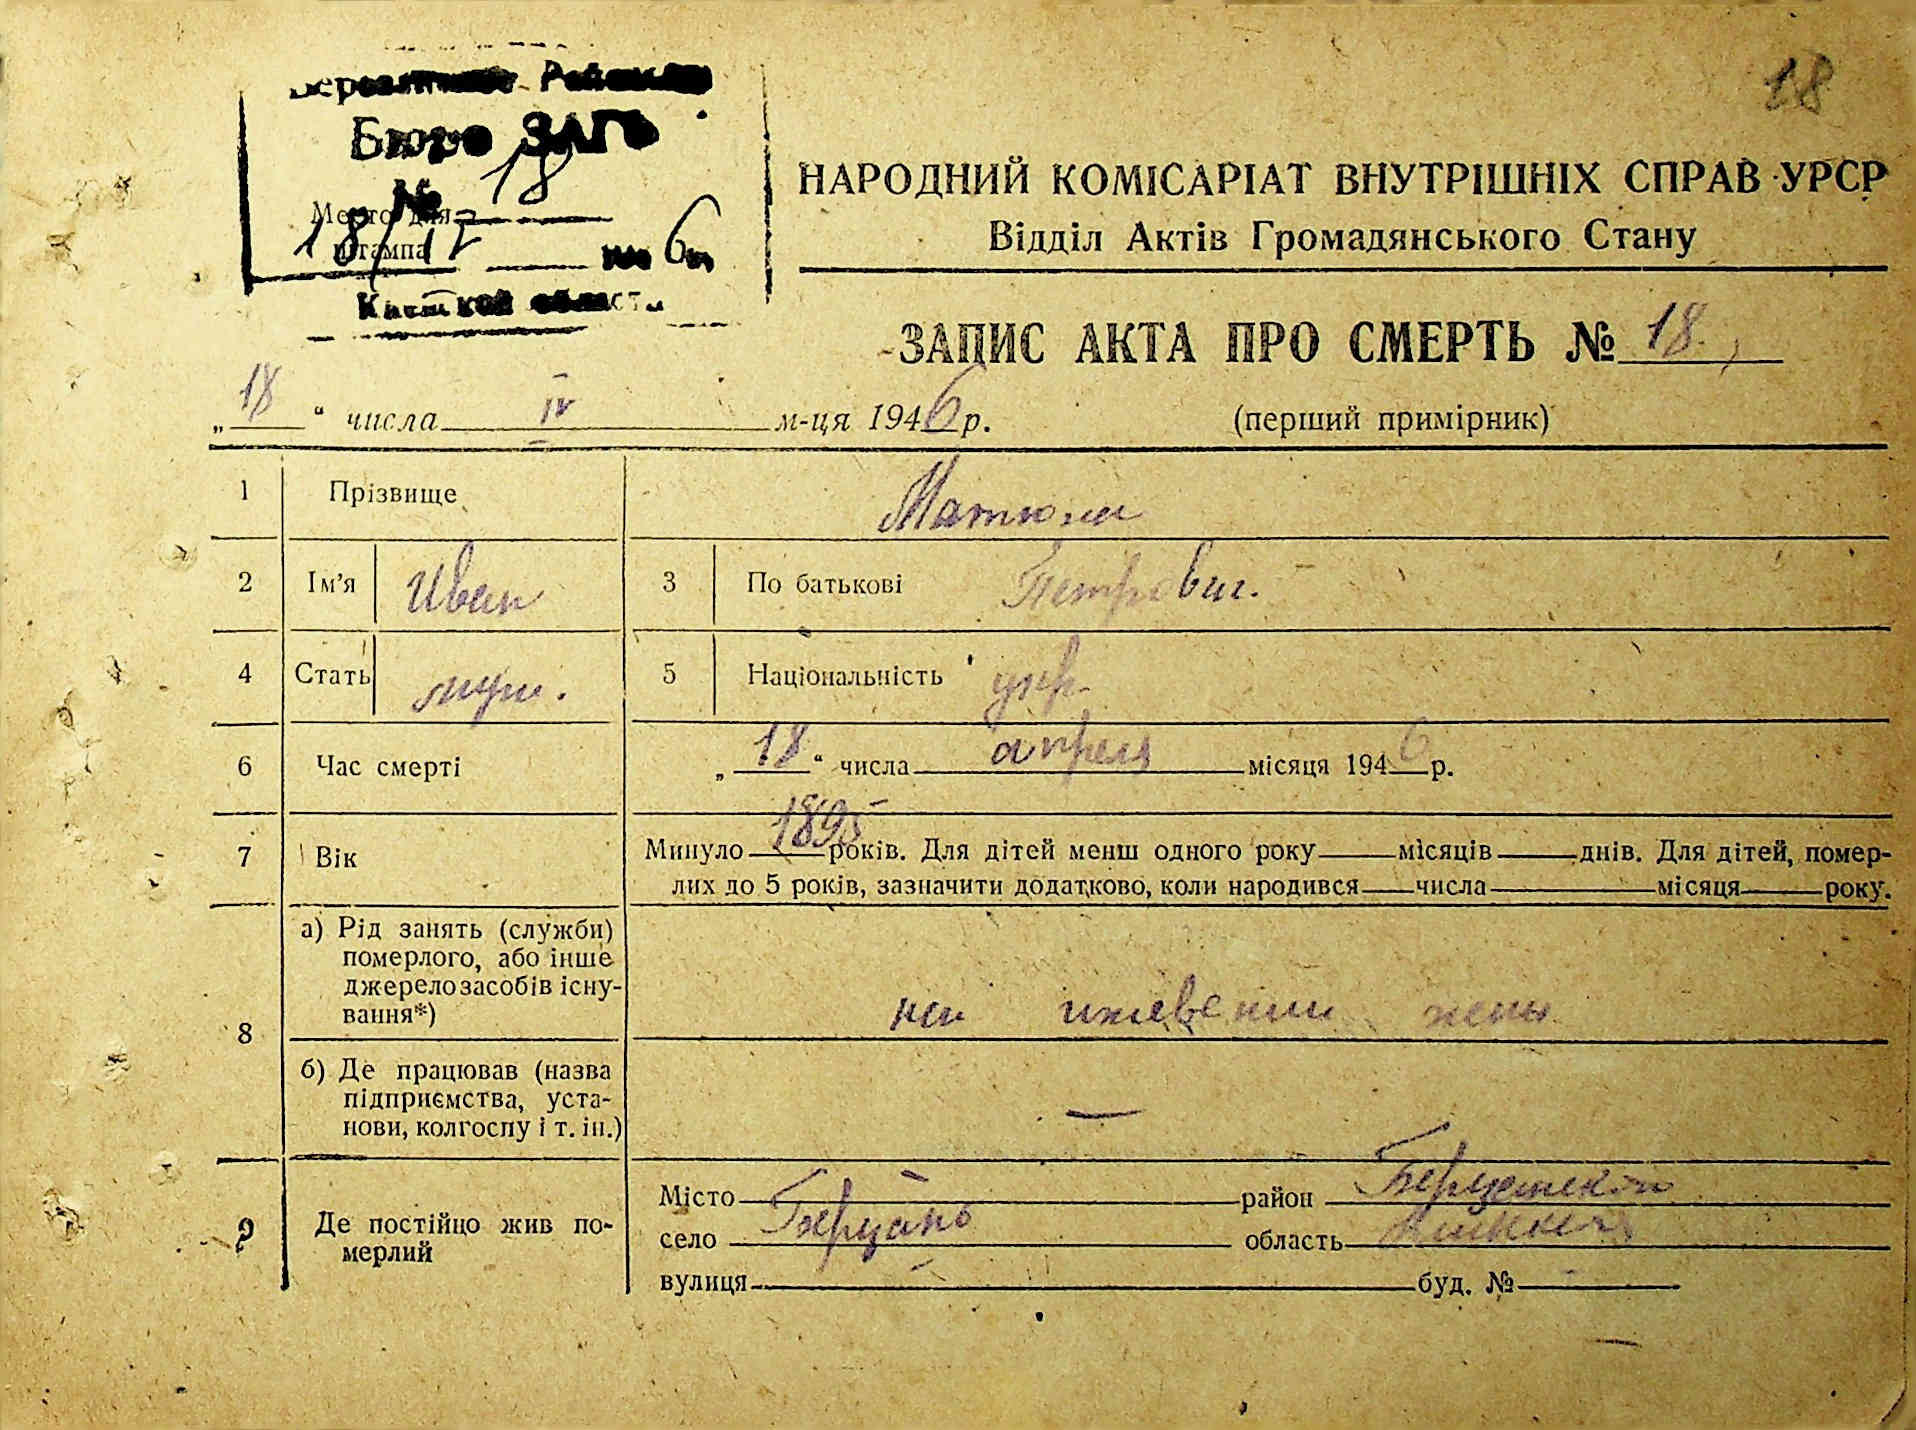 18
Бюро ЗАГС
№ 18
Место для
штампа
18/IV 6
Киевской области
НАРОДНИЙ КОМІСАРІАТ ВНУТРІШНІХ СПРАВ УРСР
Відділ Актів Громадянського Стану
ЗАПИС АКТА ПРО СМЕРТЬ № 18
„18“ числа IV м-ця 1946 р.
(перший примірник)
1 Прізвище
2 Ім'я Иван 3 По батькові Петрович.
4 Стать муж. 5 Національність укр.
6 Час смерті „18“ числа апреля місяця 1946 р.
7 Вік Минуло 1895 років. Для дітей менш одного року місяців днів. Для дітей, помер-
лих до 5 років, зазначити додатково, коли народився числа місяця року.
8 а) Рід занять (служби)
померлого, або інше
джерело засобів існу-
вання*)
на иждевении жены
б) Де працював (назва
підприємства, уста-
нови, колгоспу і т. ін.)
—
9 Де постійно жив по-
мерлий
Місто район
село область
вулиця буд. №